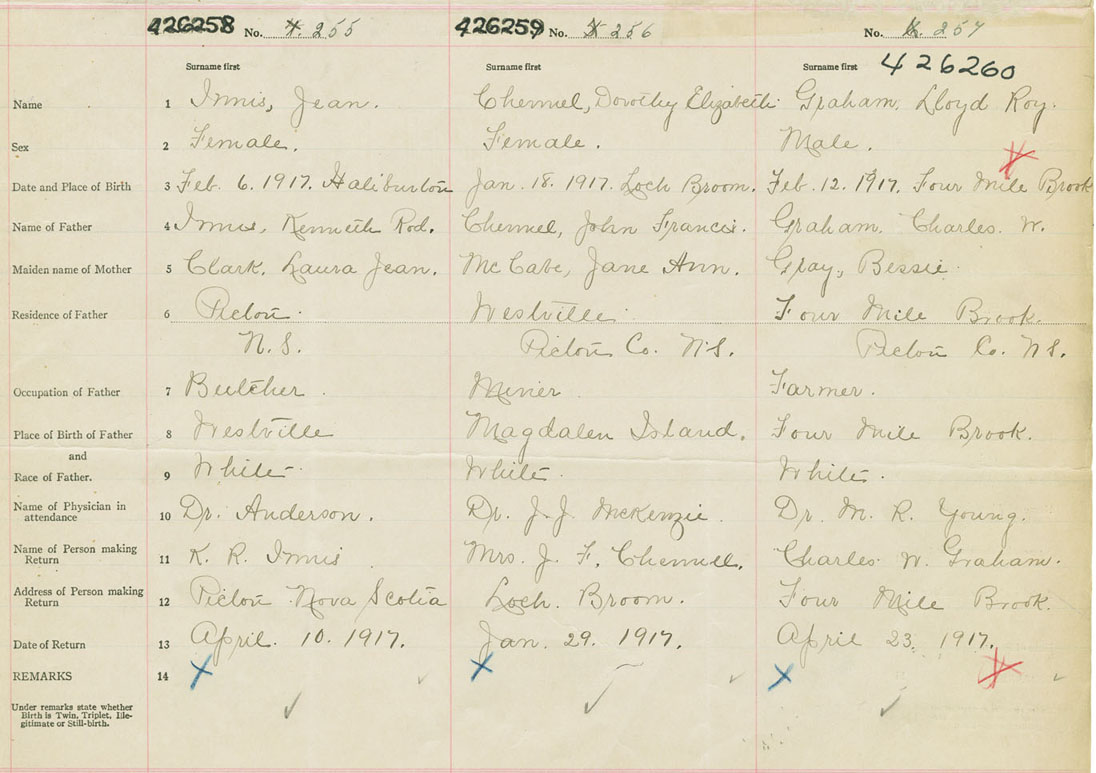 426258 No. 255 426259 No. 256 No. 257
Surname first Surname first Surname first 426260
Name 1 Innis, Jean. Chennel, Dorothy Elizabeth Graham, Lloyd Roy.
Sex 2 Female. Female. Male.
Date and Place of Birth 3 Feb. 6. 1917. Haliburton Jan. 18. 1917. Loch Broom. Feb. 12. 1917. Four Mile Brook
Name of Father 4 Innis, Kenneth Rod. Chennel, John Francis. Graham, Charles. W.
Maiden name of Mother 5 Clark, Laura Jean. McCabe, Jane Ann. Gray, Bessie.
Residence of Father 6 Pictou. Westville. Four Mile Brook.
N.S. Pictou Co. N.S. Pictou Co. N.S.
Occupation of Father 7 Butcher. Miner. Farmer.
Place of Birth of Father 8 Westville Magdalen Island. Four Mile Brook.
and
Race of Father. 9 White. White. White.
Name of Physician in
attendance 10 Dr. Anderson. Dr. J. J. McKenzie. Dr. M. R. Young.
Name of Person making
Return 11 K. R. Innis Mrs. J. F. Chennell. Charles W. Graham.
Address of Person making
Return 12 Pictou Nova Scotia Loch. Broom. Four Mile Brook.
Date of Return 13 April. 10. 1917. Jan. 29. 1917. April 23. 1917.
REMARKS 14
Under remarks state whether
Birth is Twin, Triplet, Ille-
gitimate or Still-birth.